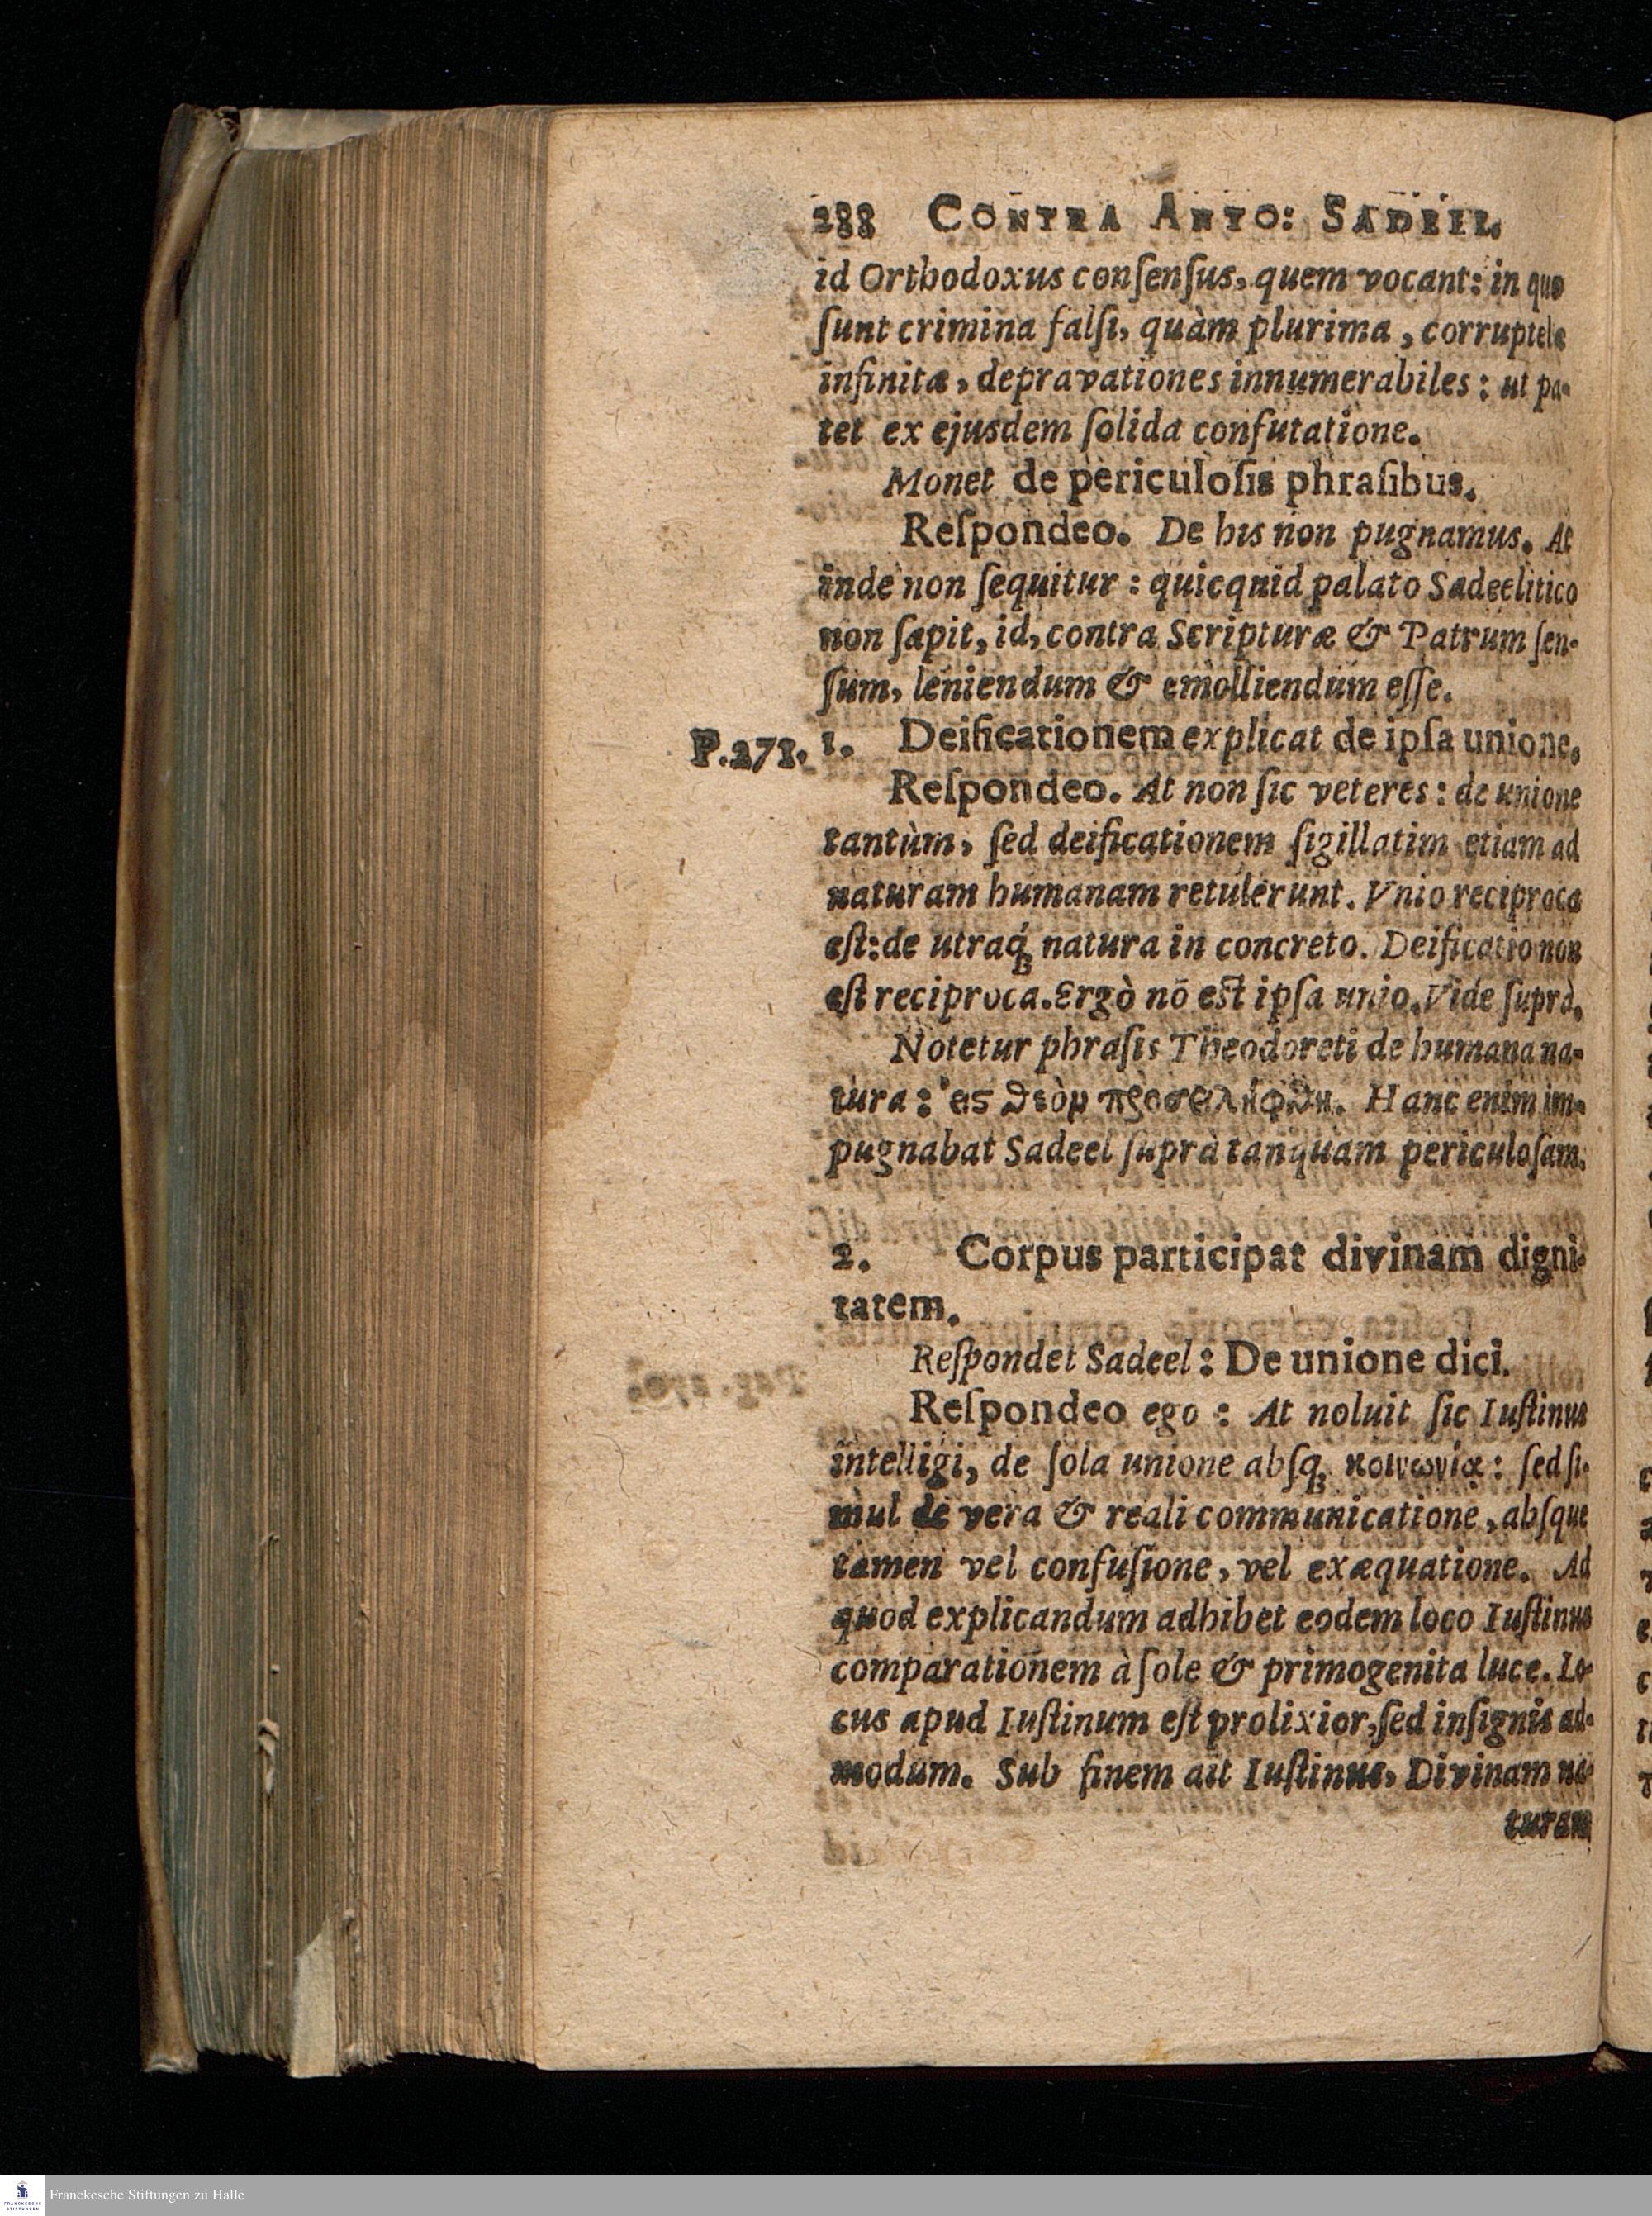 288 CONTRA ANTO: SADEEL
id Orthodoxus conſenſus, quem vocant: in quo
ſunt crimina falſi, quàm plurima, corruptelæ
infinitæ, depravationes innumerabiles: ut pa-
tet ex ejusdem ſolida confutatione.
Monet de periculoſis phraſibus.
Reſpondeo. De his non pugnamus. At
inde non ſequitur: quicquid palato Sadeelitico
non ſapit, id, contra Scripturæ & Patrum ſen-
ſum, leniendum & emolliendum eſſe.
P.271. 1. Deificationem explicat de ipſa unione.
Reſpondeo. At non ſic veteres: de unione
tantùm, ſed deificationem ſigillatim etiam ad
naturam humanam retulerunt. Vnio reciproca
eſt: de utraq́; natura in concreto. Deificatio non
eſt reciproca. Ergò nō eſt ipſa unio. Vide ſuprà.
Notetur phraſis Theodoreti de humana na-
tura: εἰς θεὸν προσειλήφθη. Hanc enim im-
pugnabat Sadeel ſuprà tanquam periculoſam.
2. Corpus participat divinam digni-
tatem.
Reſpondet Sadeel: De unione dici.
Reſpondeo ego: At noluit ſic Iuſtinus
intelligi, de ſola unione abſq; κοινωνία: ſed ſi-
mul de vera & reali communicatione, abſque
tamen vel confuſione, vel exæquatione. Ad
quod explicandum adhibet eodem loco Iuſtinus
comparationem à ſole & primogenita luce. Lo-
cus apud Iuſtinum eſt prolixior, ſed inſignis ad-
modum. Sub finem ait Iuſtinus, Divinam na-
turam
Franckesche Stiftungen zu Halle